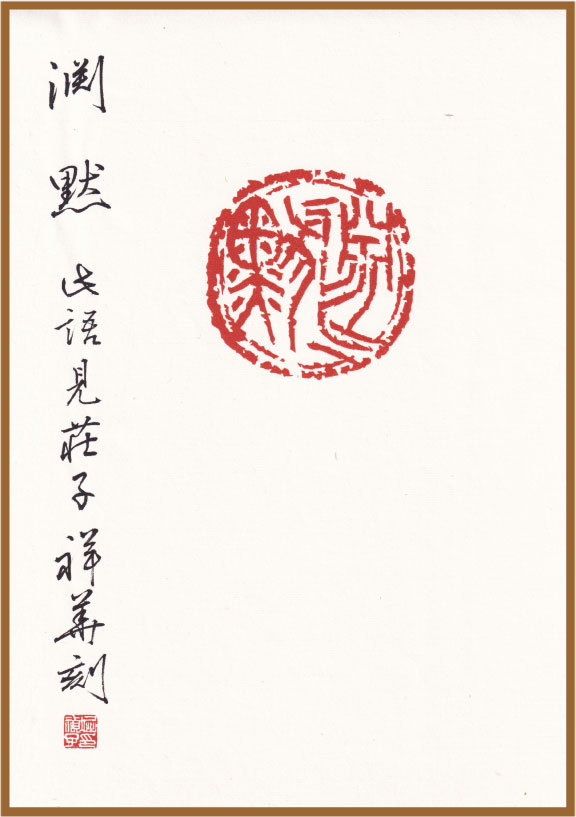 渊默 此語見莊子 祥華刻